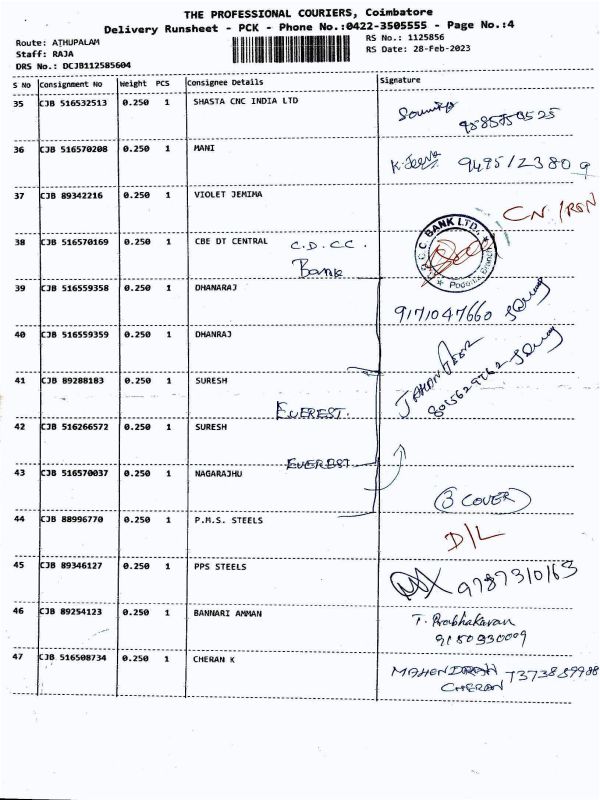 THE PROFESSIONAL COURIERS, Coimbatore
Delivery Runsheet - PCK - Phone No.:0422-3505555 - Page No.:4
Route: ATHUPALAM
RS No.: 1125856
Staff: RAJA
RS Date: 28-Feb-2023
DRS No.: DCJB112585604
S No Consignment No Weight PCS Consignee Details Signature
35 CJB 516532513 0.250 1 SHASTA CNC INDIA LTD
36 CJB 516570208 0.250 1 MANI K. Jeeva 9495123809
37 CJB 89342216 0.250 1 VIOLET JEMIMA
38 CJB 516570169 0.250 1 CBE DT CENTRAL C.D.CC. Bank
C.C. BANK LTD.
39 CJB 516559358 0.250 1 DHANARAJ 9171047660
40 CJB 516559359 0.250 1 DHANRAJ
41 CJB 89288183 0.250 1 SURESH
EVEREST.
42 CJB 516266572 0.250 1 SURESH
EVEREST
43 CJB 516570037 0.250 1 NAGARAJHU
(3 COVER)
44 CJB 88996770 0.250 1 P.M.S. STEELS D/L
45 CJB 89346127 0.250 1 PPS STEELS 9787310163
46 CJB 89254123 0.250 1 BANNARI AMMAN T. Prabhakaran
9180930009
47 CJB 516508734 0.250 1 CHERAN K MAHENDRAN 7373889988
CHERAN